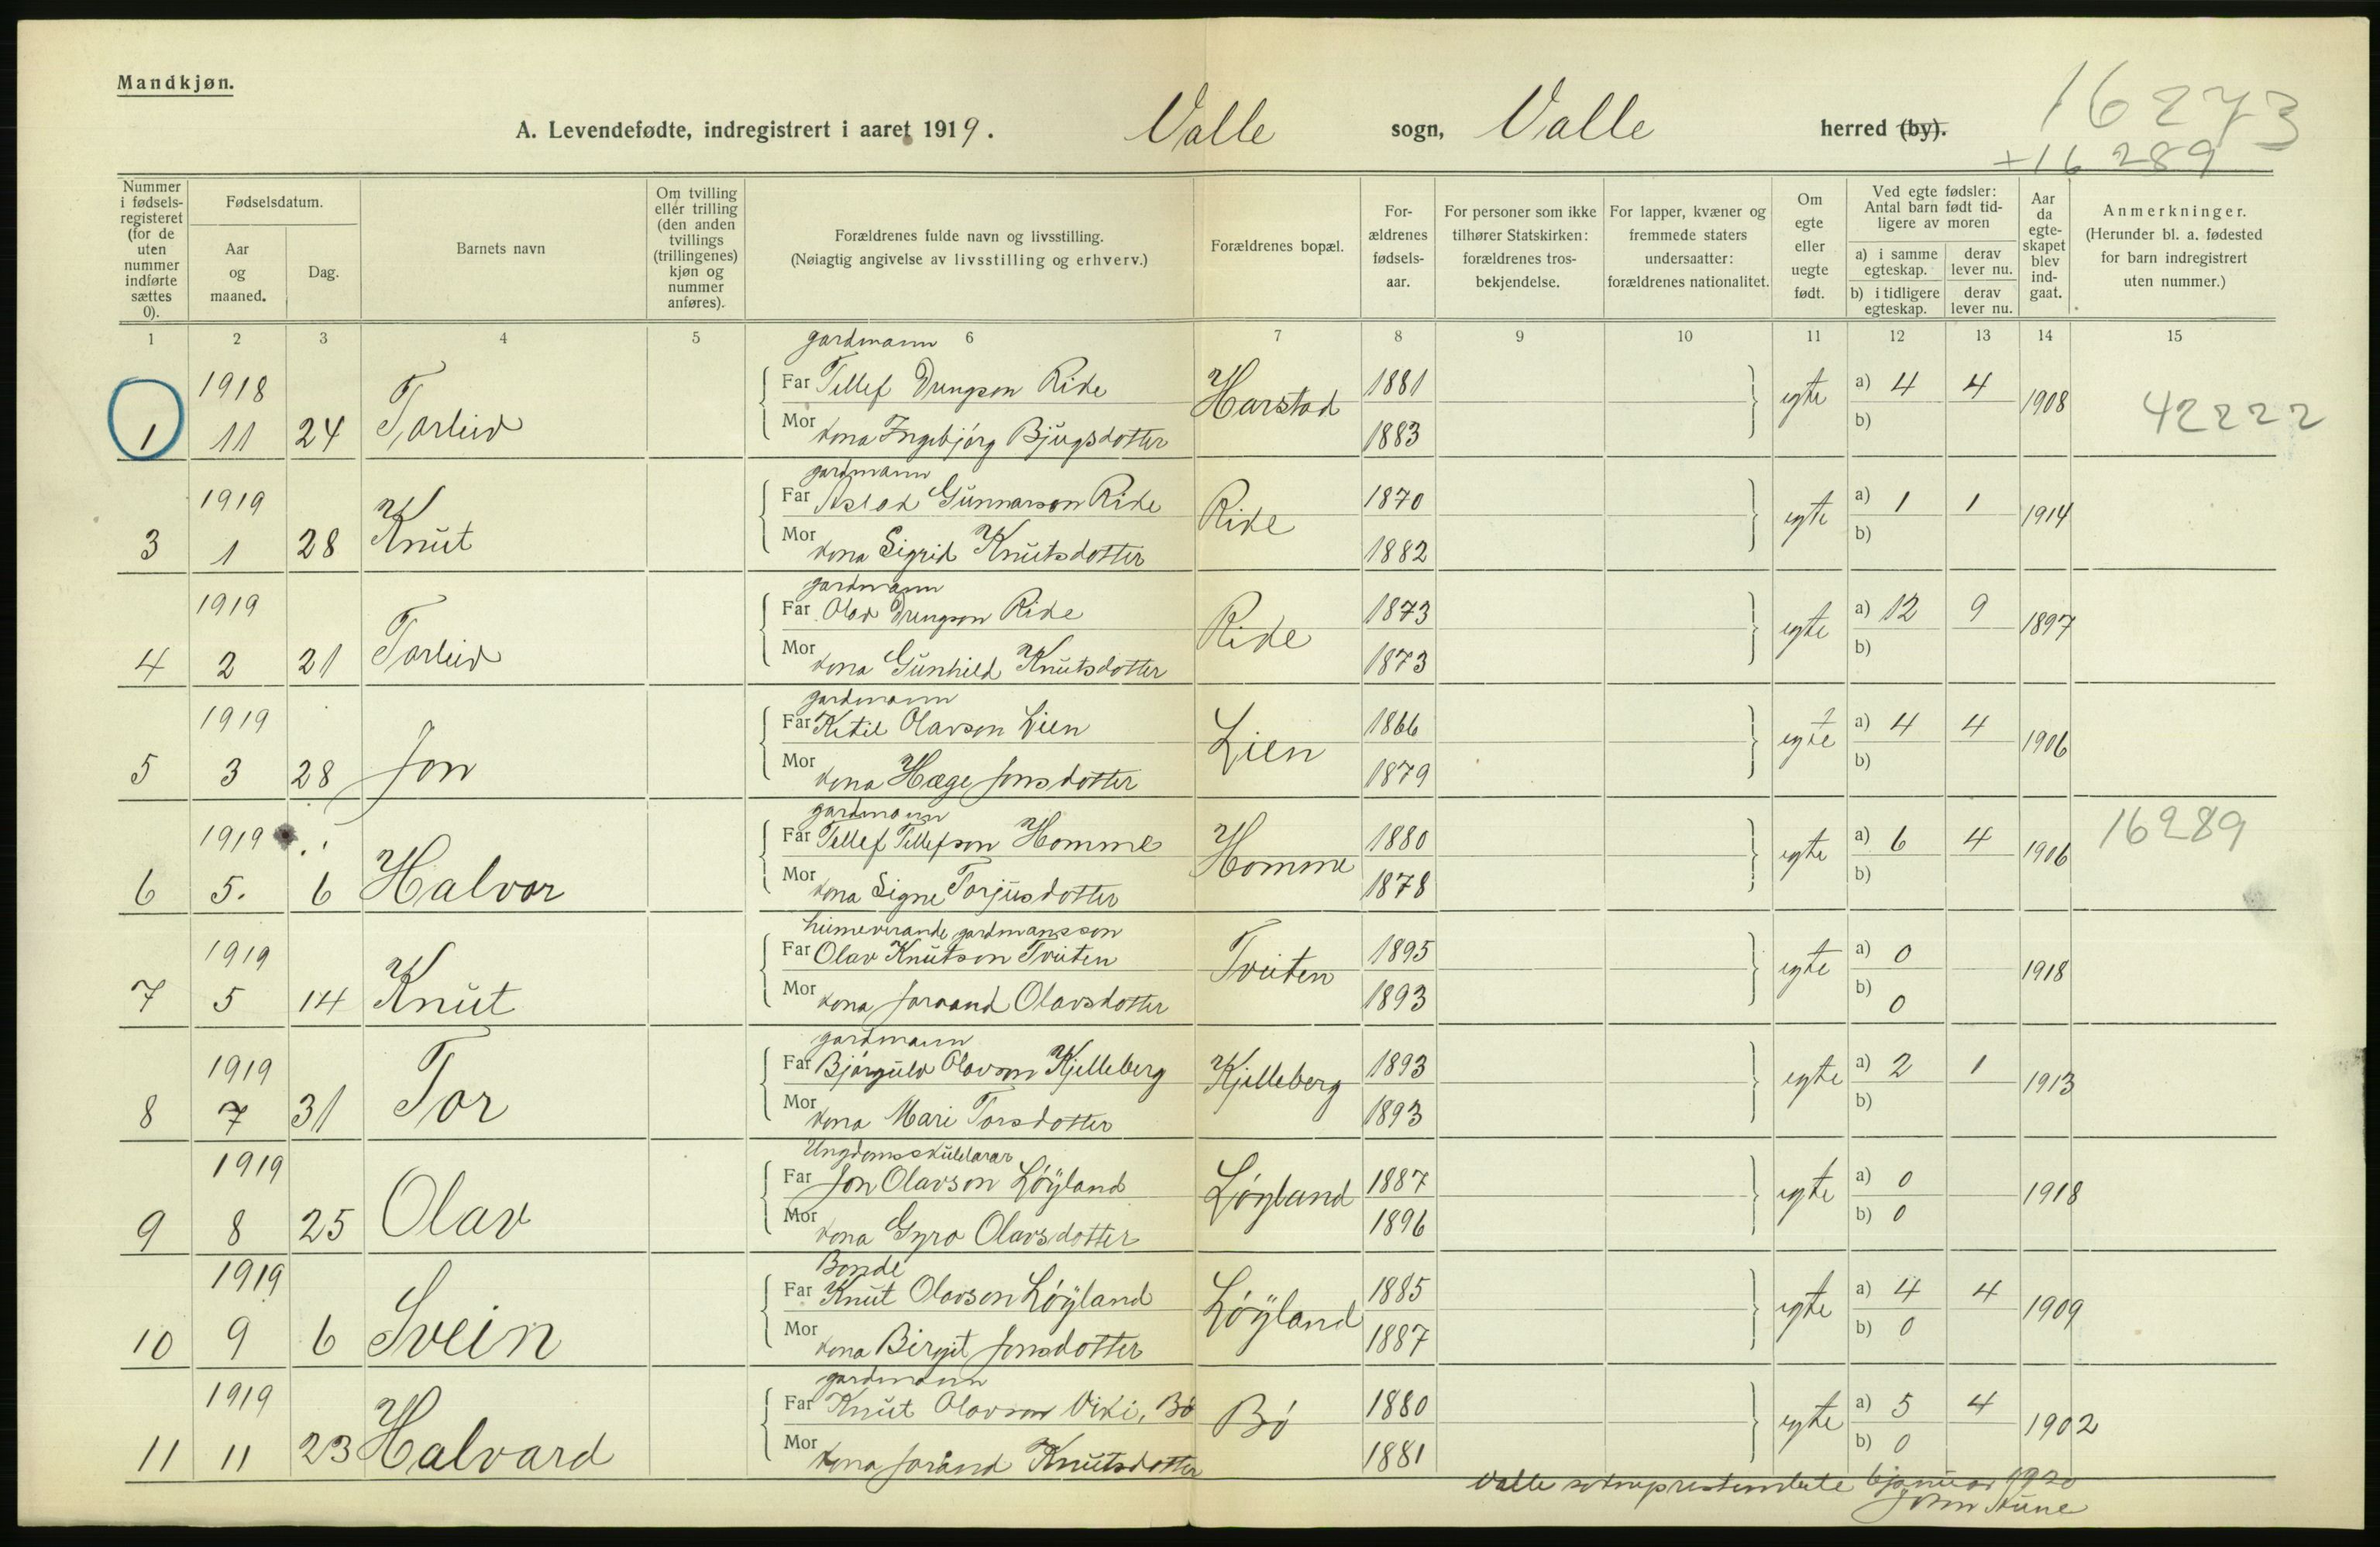 Mandkjøn.
A. Levendefødte, indregistrert i aaret 1919. Valle sogn, Valle herred (by).
16273
+16289
Nummer i fødsels-registeret (for de uten nummer indførte sættes 0).
Fødselsdatum.
Aar og maaned.
Dag.
Barnets navn
Om tvilling eller trilling (den anden tvillings (trillingenes) kjøn og nummer anføres).
Forældrenes fulde navn og livsstilling.
(Nøiagtig angivelse av livsstilling og erhverv.)
Forældrenes bopæl.
For-ældrenes fødsels-aar.
For personer som ikke tilhører Statskirken: forældrenes tros-bekjendelse.
For lapper, kvæner og fremmede staters undersaatter: forældrenes nationalitet.
Om egte eller uegte født.
Ved egte fødsler: Antal barn født tid-ligere av moren
a) i samme egteskap.
derav lever nu.
b) i tidligere egteskap.
derav lever nu.
Aar da egte-skapet blev ind-gaat.
Anmerkninger.
(Herunder bl. a. fødested for barn indregistrert uten nummer.)
1 2 3 4 5 6 7 8 9 10 11 12 13 14 15
gardmann
1918 Far Tellef Drengson Rike 1881 a) 4 4
1 11 24 Torleiv Harstad egte 1908 42222
Mor kona Ingebjørg Bjugsdotter 1883 b)
gardmann
1919 Far Aslak Gunnarson Rike 1870 a) 1 1
3 1 28 Knut Rike egte 1914
Mor kona Sigrid Knutsdotter 1882 b)
gardmann
1919 Far Olav Drengson Rike 1873 a) 12 9
4 2 21 Torleiv Rike egte 1897
Mor kona Gunhild Knutsdotter 1873 b)
gardmann
1919 Far Ketil Olavson Lien 1866 a) 4 4
5 3 28 Jon Lien egte 1906
Mor kona Hæge Jonsdotter 1879 b)
gardmann
1919 Far Tellef Tellefson Homme 1880 a) 6 4 16289
6 5. 6 Halvor Homme egte 1906
Mor kona Signe Torjusdotter 1878 b)
heimeverande gardmansson
1919 Far Olav Knutson Tveiten 1895 a) 0
7 5 14 Knut Tveiten egte 1918
Mor kona Jorand Olavsdotter 1893 b) 0
gardmann
1919 Far Bjørgulv Olavson Kjelleberg 1893 a) 2 1
8 7 31 Tor Kjelleberg egte 1913
Mor kona Mari Torsdotter 1893 b)
Ungdomsskulelærar
1919 Far Jon Olavson Løyland 1887 a) 0
9 8 25 Olav Løyland egte 1918
Mor kona Gyro Olavsdotter 1896 b) 0
Bonde
1919 Far Knut Olavson Løyland 1885 a) 4 4
10 9 6 Svein Løyland egte 1909
Mor kona Birgit Jonsdotter 1887 b) 0
gardmann
1919 Far Knut Olavson Viki, Bø 1880 a) 5 4
11 11 23 Halvard Bø egte 1902
Mor kona Jorånd Knutsdotter 1881 b) 0
Valle sokneprestembete 6 januar 1920